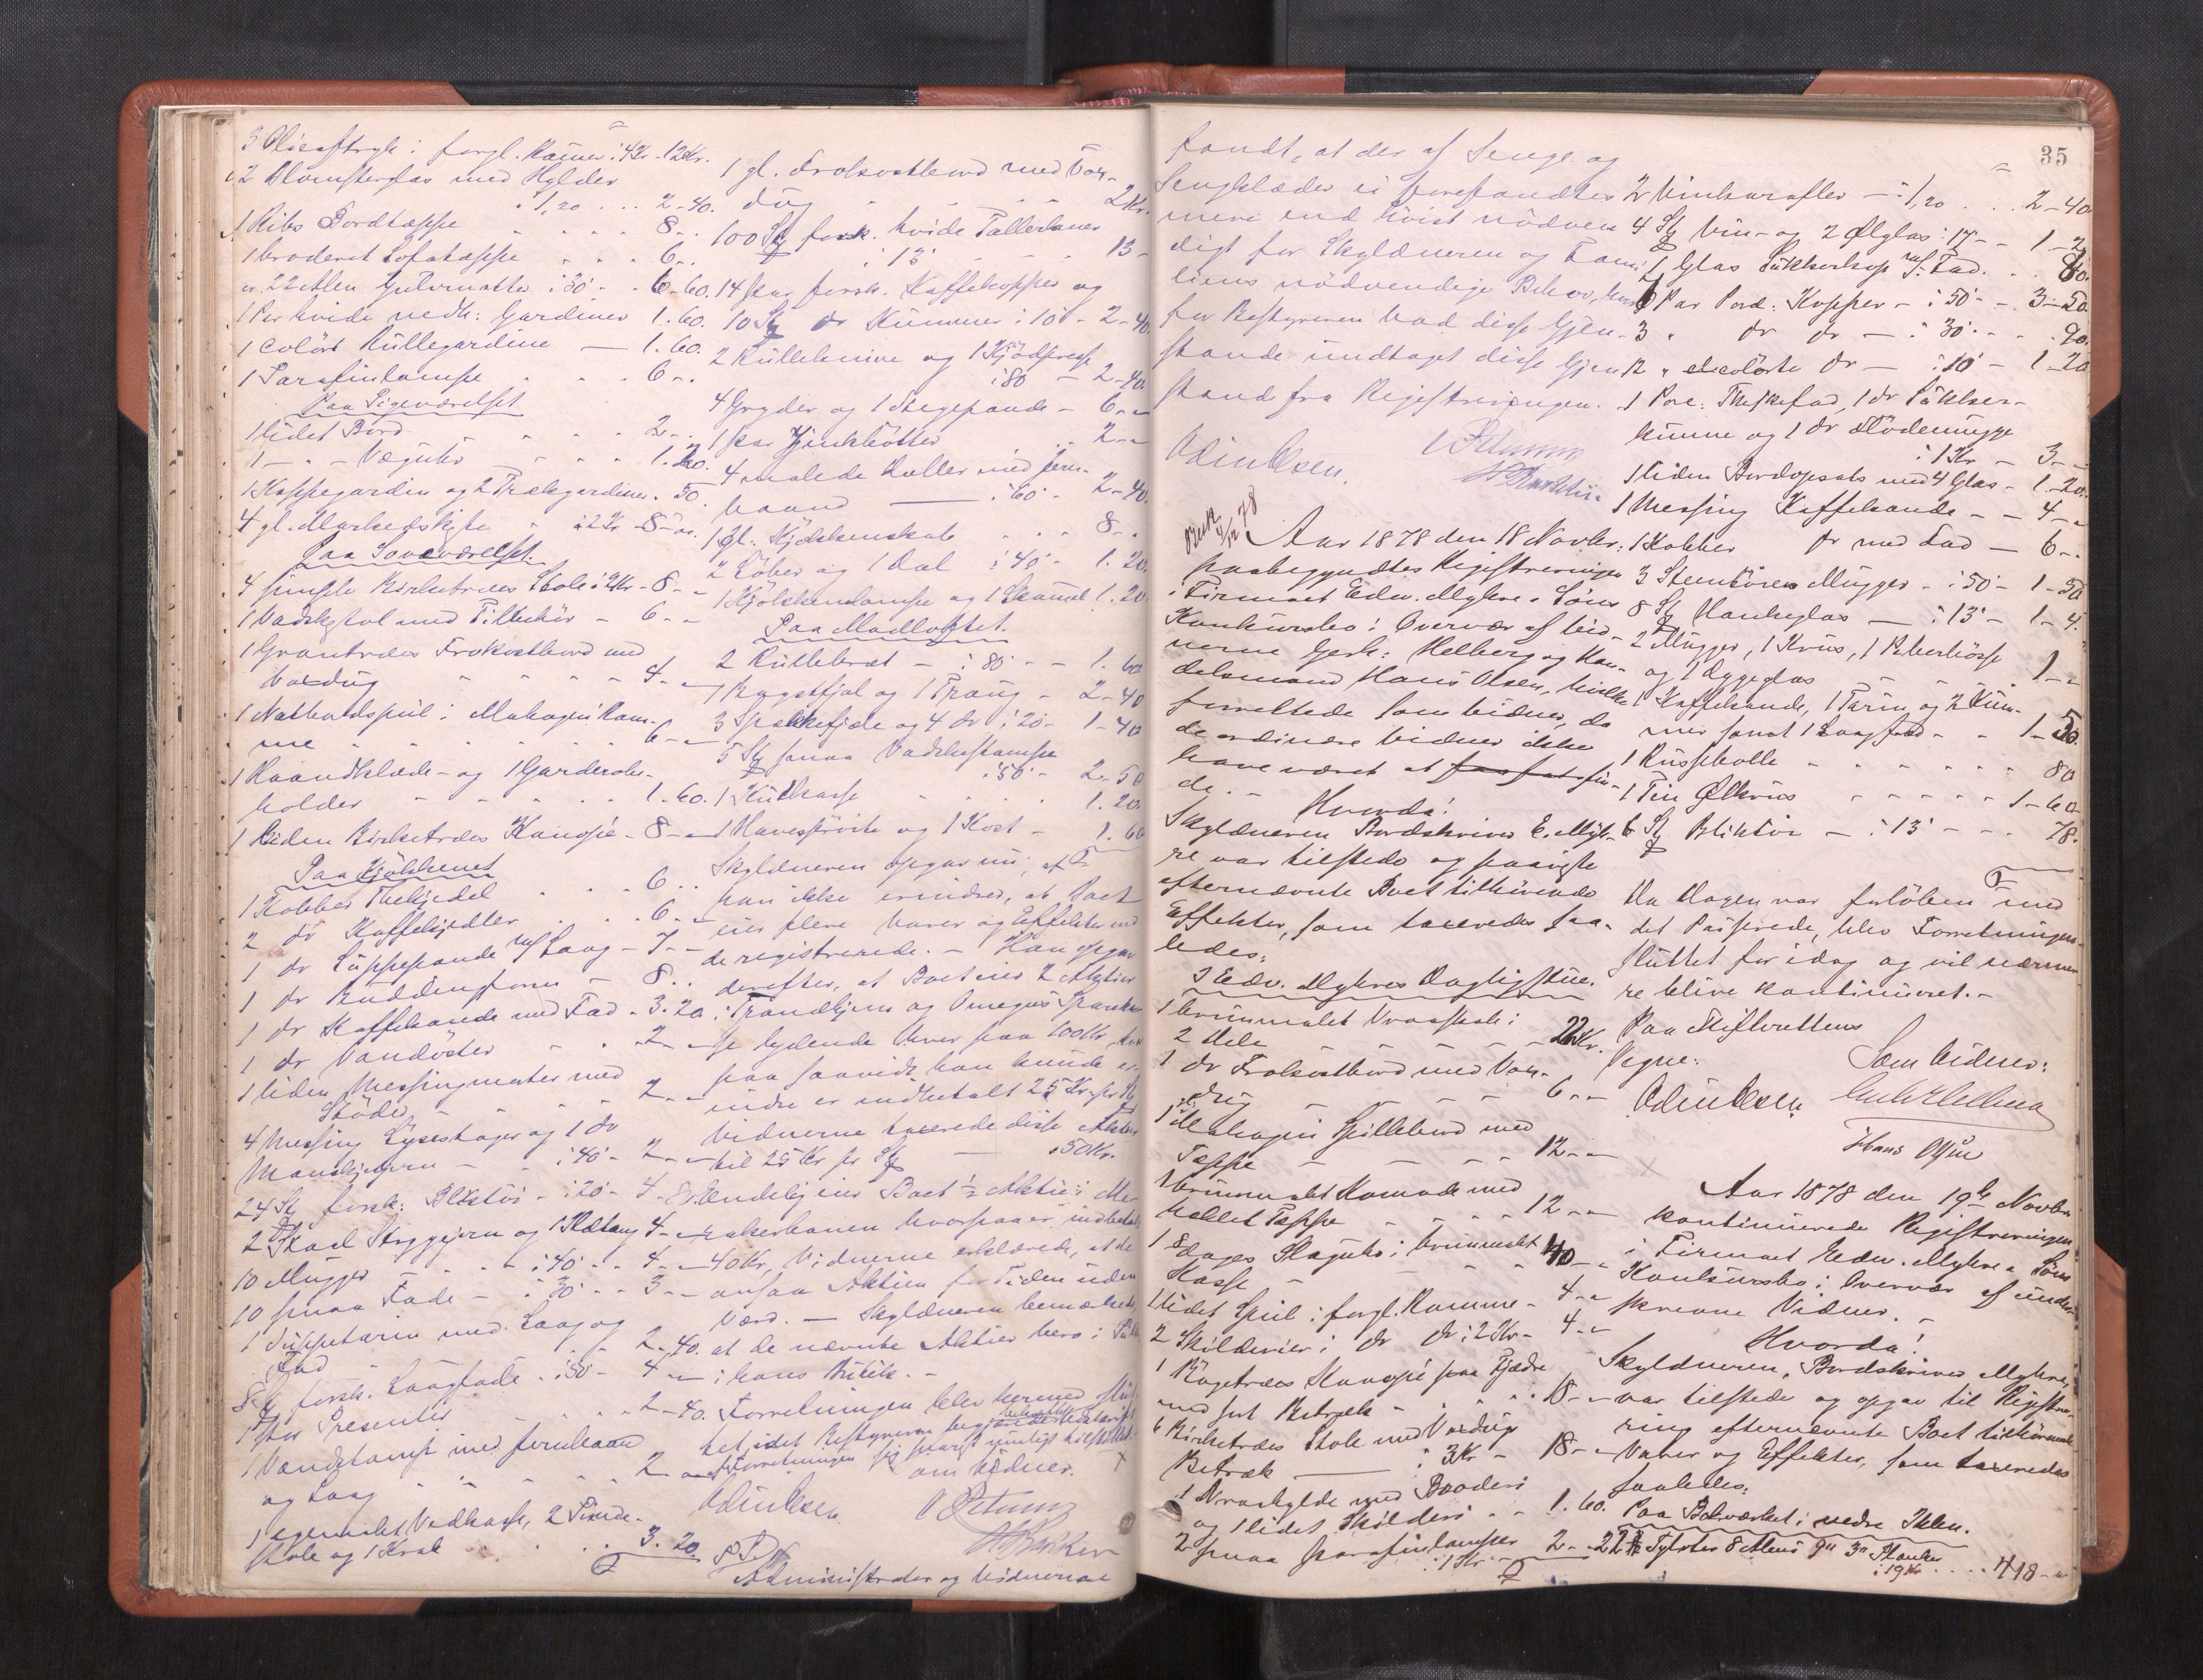 3 Olieaftryk i forgl. Ramer i 4 Kr - 12 Kr.
2 Blomsterglas med Hylder
i 1,20 . . . 2-40.
1 Ribs Bordtæppe . . . . 8 - .
1 broderet Sofatæppe . . . 6 - .
22 Alen Gulvmatter i 30 - . 6-60.
1 Par hvide nedh: Gardiner 1.60.
1 colört Rullegardine — 1.60.
1 Parafinlampe . . . 6 - .
Paa Pigeværelset
1 lidet Bord . . . . 2 - .
1 — " — Væguhr . . . . 1.20.
1 Kappegardin og 2 Trækgardiner . 50.
4 gl. Markedskjste . i 2 Kr - 8 -
Paa Soveværelset.
4 simple Birketræes Stole i 2 Kr - 8 - -
1 Vadskstol med Tilbehör - 6 - -
1 Grantræes Frokostbord med
Voxdug . . . . 4 - -
1 Nathuldspeil i Mahogni Ram-
me . . . . . 6 - -
1 Haandklæde- og 1 Garderobe-
holder . . . . . 1.60.
1 liden Birketræes Kanapé - 8 - -
Paa Kjökkenet
1 Kobber Thekjedel . . . 6 . .
2 dr Kaffekjedler . . . 6 - -
1 dr Suppepande m/ Laag - 7 - -
1 dr Buddingform - 8 . .
1 dr Kaffekande med Fad - 3.20.
1 dr Vandöster . . . 2 - -
1 liden Messingmorter med
Stöder . . . . . 2 - -
4 Messing Lysestager og 1 dr
Maaskjern - . i 40 - 2 - -
24 St forsk: Bliktöi - i 20 - 4-80
2 Staal Strygejern og 1 Ildtang 4 - -
10 Mugger . . . . i 40 - . 4 - -
10 smaa Fade - . i 30 - . 3 - -
1 Suppeterin med Laag og
Fad . . . . . 2-40.
8 St forsk. Laagfade . i 50 - 4 - -
1 stor Presentér . . . 2-40.
1 Vandstamp med Jernbaand
og Laag . . . . . 2 - -
1 egemalet Vedkasse, 2 Pinde-
stole og 1 Krak . . . . . 3.20
1 gl. Frokostbord med Vox-
dug . . . . . . 2 Kr.
100 St forsk. hvide Tallerkener
i 13 . . . . 13 -
14 Par forsk. Kaffekopper og
10 St dr Kummer i 10 - 2-40
2 Rulleknive og 1 Kjödpresse
i 80 - 2-40
4 Gryder og 1 Stegepande - 6 - -
1 par Vinkbötter . . 2 - -
4 malede Buller med Jern-
baand — i 60 - 2-40.
1 gl: Kjökkenskab . . . 8 - .
2 Löber og 1 Dal i 40 - 1.20.
1 Kjökkenlampe og 1 Skammel 1.20.
Paa Madloftet.
2 Rullebræt - i 80 - - 1.60
1 Bagstfjöl og 1 Traug - 2-40
3 Spækkefjæle og 4 dr i 20 - 1-40
5 St smaa Vadskestampe
i 50 - 2-50
1 Kulkasse . . . . 1.20.
1 Havesprøite og 1 Kost - 1.60
Skyldneren opgav nu, at
han ikke erindrer, at Boet
eier flere Varer og Effekter end
de registrerede. - Han opgav
derefter, at Boet eier 2 Aktier
i Trondhjems og Omegns Sparekas-
se lydende hver paa 100 Kr, hvor-
paa saavidt han kunde er-
indre er indbetalt 25 Kr. pr St
Vidnerne taxerede disse Aktier
til 25 Kr pr St — 50 Kr.
Endelig eier Boet 1/2 Aktie i Me-
rakerbanen hvorpaa er indbetalt
40 Kr, Vidnerne erklærede, at de
ansaa Aktien for Tiden uden
Værd. — Skyldneren bemærkede,
at de nævnte Aktier bero i
i hans Butik. -
Forretningen blev hermed slut-
tet, idet Bestyreren begjærede bekræftet Udskrift
af Forretningen sig snarest muligt tilstillet.
om Vidner.
Odin Olsen.
P. S.
Administrator og Vidnerne
35
fandt, at der af Senge og
Sengklæder ei forefandtes
mere end høist nödven-
digt for Skyldneren og Fami-
liens nödvendige Behov, hvor-
for Bestyreren lod disse Gjen-
stande undtaget disse Gjen-
stande fra Registreringen. -
Odin Olsen.
Aar 1878 den 18 Novbr:
paabegyndtes Registreringen
i Firmaet Edv. Myhre & Söns
Konkursbo i Overvær af Vid-
nerne Gerh: Helberg og Han-
delsmand Hans Olsen, hvilke
forrettede som Vidner, da
de ordinære Vidner ikke
have været at faa fat fin-
de. -
Hvorda!
Skyldneren Bordskriver E. Myh-
re var tilstede og paaviste
efternævnte Boet tilhörende
Effekter, som taxeredes saa-
ledes:
I Edv. Myhres Dagligstue.
1 brunmalet Vraaskab i
2 Dele . . . . . 22 Kr.
1 dr Frokostbord med Vox-
dug . . . . . 6 - -
1 Mahogni Spillebord med
Tæppe . . . . . 12 - -
1 brunmalet Komode med
heklet Tæppe . . . . 12 - -
1 8 Dages Slaguhr i brunmalet
Kasse . . . . . 40 - -
1 lidet Speil i forgl. Ramme - 4 - -
2 Skilderier i dr dr i 2 Kr - 4 - -
1 Bögetræes Kanapé paa Fjædre
med sort Betræk . . . 18 - -
6 Birketræes Stole med Voxdug
Betræk — i 3 Kr - 18 - -
1 Vraahylde med Broderi
og 1 lidet Skilderi . . 1.60.
2 smaa Parafinlamper
i 1 Kr - 2 - -
2 Vinkarafler — i 1,20 . . . 2-40
4 St Vin- og 2 Ölglas i 17 - - 1-2
1 Glas Sukkerkop m/ Fad . . . 80.
Par Porc: Kopper - i 50 - - 3-50.
3 " dr dr — i 30 - - . 90.
12 " decolörte dr — i 10 - 1-20
1 Porc: Theskefad, 1 dr Sukker-
kumme og 1 dr Flödemugge
i 1 Kr - 3 - -
1 liden Bordopsats med 4 Glas - 1-20.
1 Messing Kaffekande - - 4 - -
1 Kobber dr med Fad — 6 - .
3 Steentöies Mugger - i 50 - 1-50
8 St Hankeglas — i 13 - 1-4.
2 Mugger, 1 Krus, 1 Peberbösse
og 1 Æggeglas . . . . 1 - -
1 Kaffekande, 1 Terin og 2 Kum-
mer samt 1 Laagfad - - 1-50.
1 Punschebolle - - - - - 80
1 Tin Ölkrus - - - - - 1-60
6 St Bliktöi — i 13 - - - 78.
Da Dagen var forlöben med
det Passerede, blev Forretningen
sluttet for idag og vil nærme-
re blive kontinueret. -
Paa Skifterettens
Vegne:
Som Vidner:
Odin Olsen.
Hans Olsen
Aar 1878 den 19de Novbr
kontinuerede Registreringen
i Firmaet Edv. Myhre & Söns
Konkursbo i Overvær af under-
skrevne Vidner. -
Hvorda!
Skyldneren, Bordskriver Myhre,
var tilstede og opgav til Registre-
ring efternævnte Boet tilhörende
Varer og Effekter, som taxeredes
saaledes:
Paa Bolværket i nedre Ihlen.
22 Tylvter 8 Alens 9" 3" Planker
i 19 Kr . . . . 418 - -